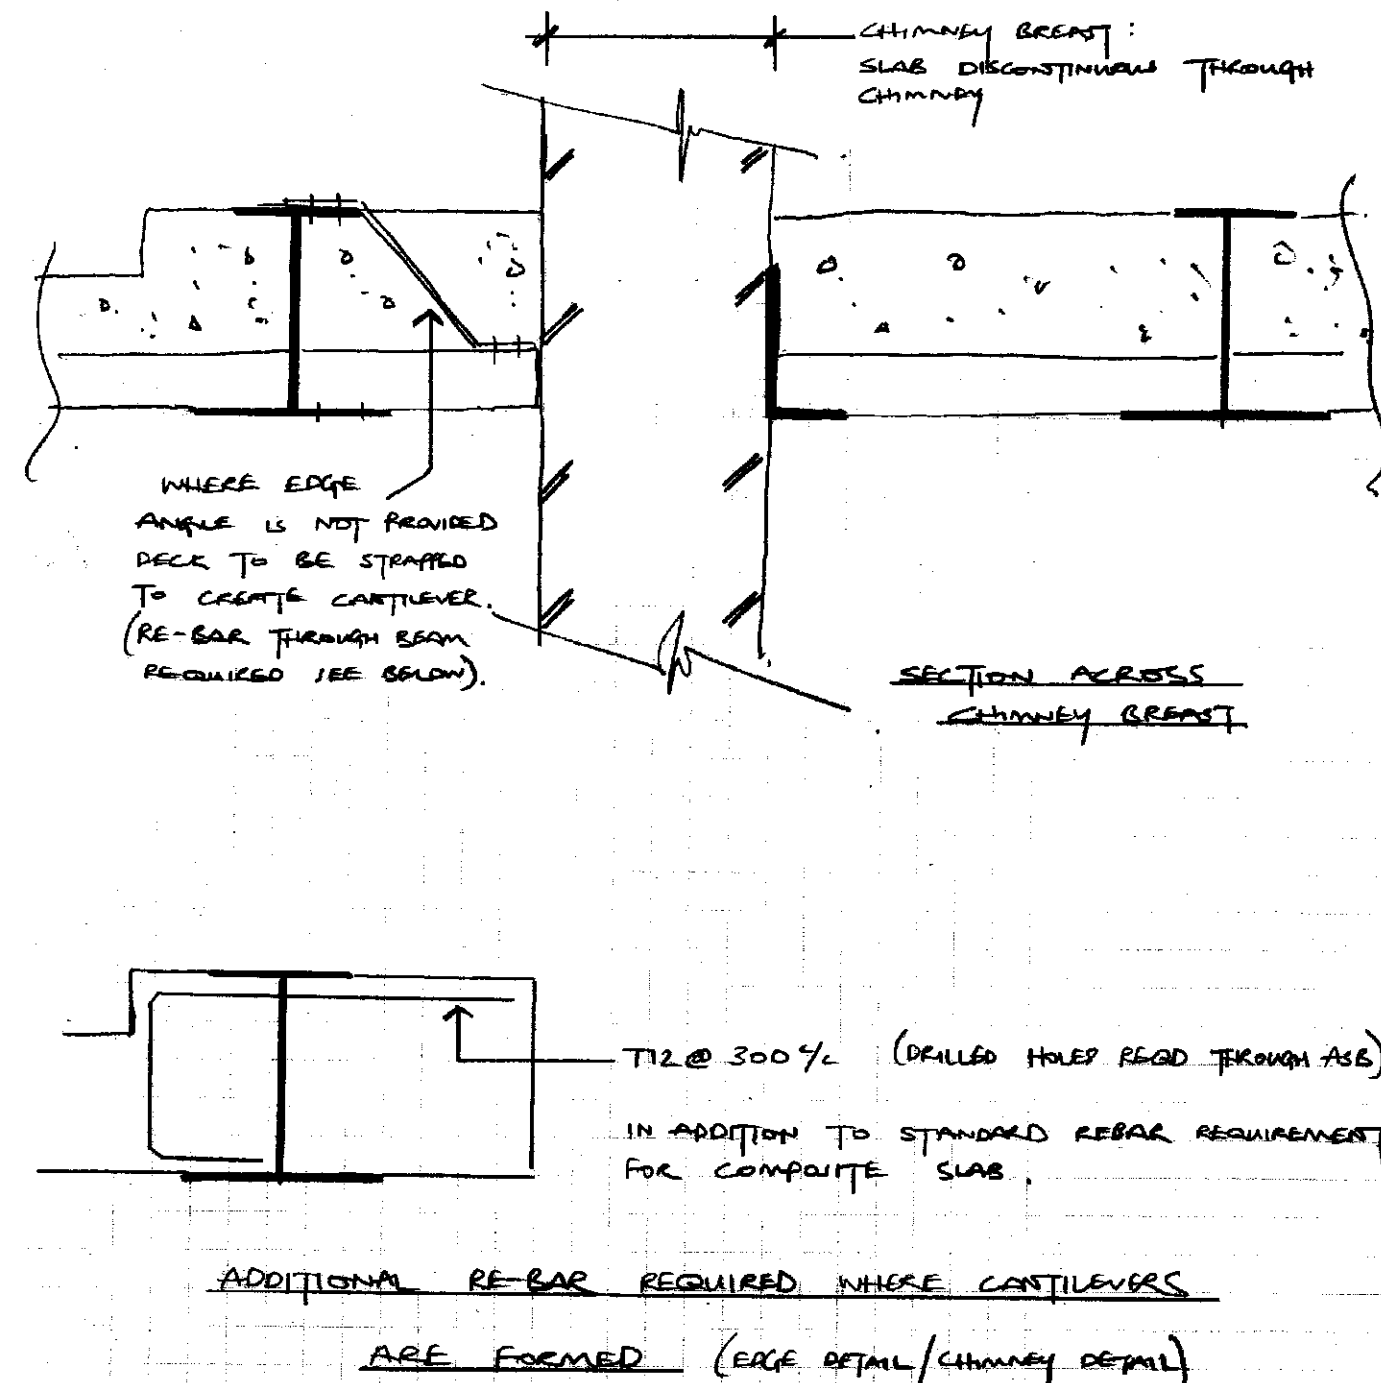 CHIMNEY BREAST :
SLAB DISCONTINUOUS THROUGH
CHIMNEY
WHERE EDGE
ANGLE IS NOT PROVIDED
DECK TO BE STRAPPED
TO CREATE CANTILEVER.
(RE-BAR THROUGH BEAM
REQUIRED SEE BELOW).
SECTION ACROSS
CHIMNEY BREAST
T12 @ 300 c/c (DRILLED HOLES REQD THROUGH ASB)
IN ADDITION TO STANDARD REBAR REQUIREMENT
FOR COMPOSITE SLAB.
ADDITIONAL RE-BAR REQUIRED WHERE CANTILEVERS
ARE FORMED (EDGE DETAIL/CHIMNEY DETAIL)